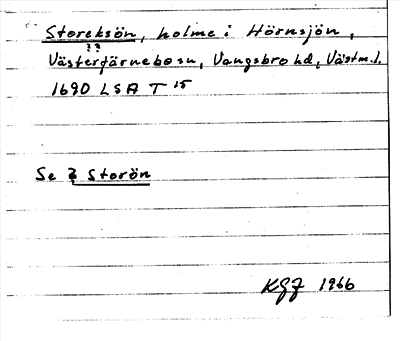 Storeksön, holme i Hörnsjön,
??
Västerfärnebo sn, Vangsbro hd, Västm.l.
1690 LSA T 15
Se 2 Storön
KGJ 1966